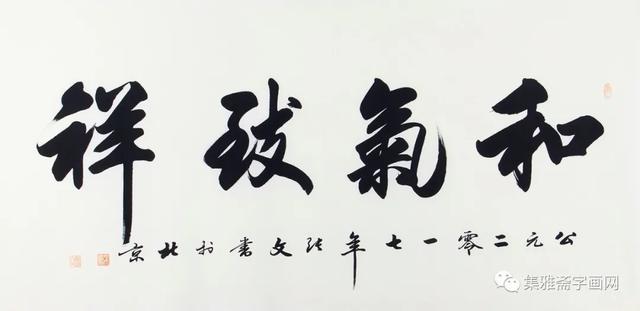 和氣致祥
公元二零一七年張文書於北京
集雅斋字画网